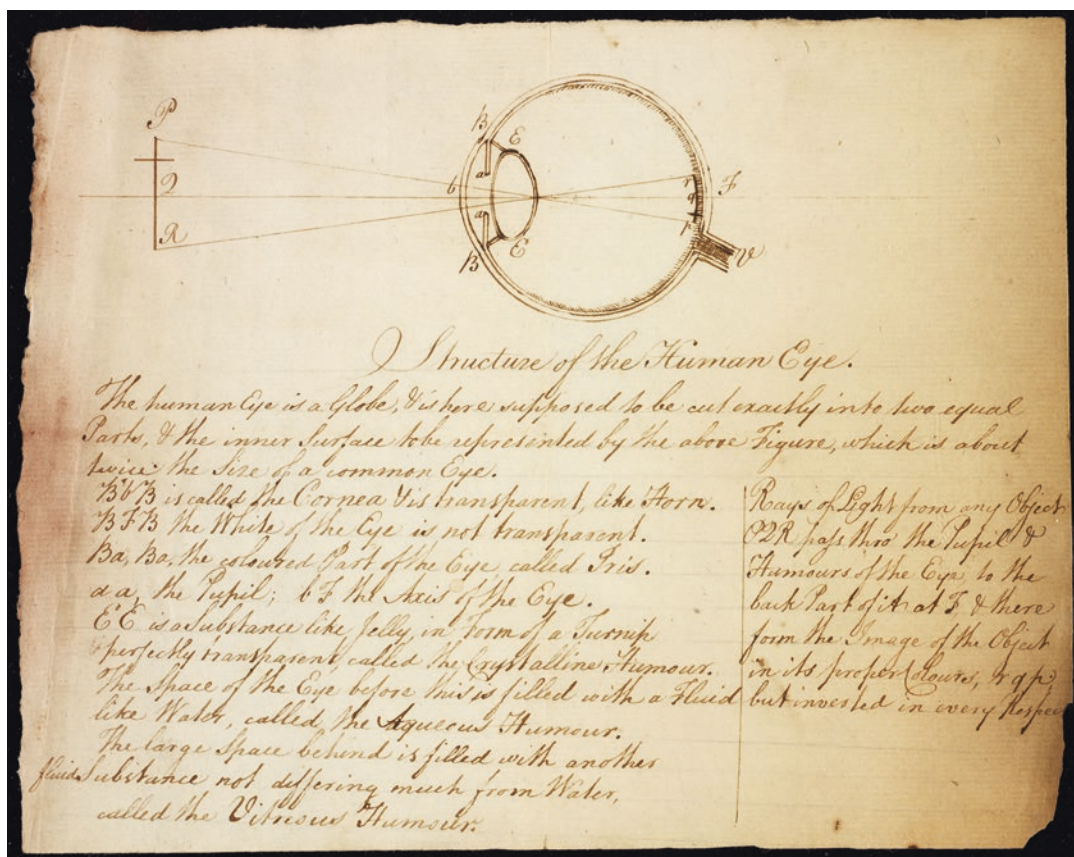 P
B
E
a
b
r
F
Q
q
R
a
p
B
E
V
Structure of the Human Eye.
The human Eye is a Globe, & is here supposed to be cut exactly into two equal
Parts, & the inner Surface to be represented by the above Figure, which is about
twice the Size of a common Eye.
B b B is called the Cornea & is transparent, like Horn.
B F B the White of the Eye is not transparent.
Ba, Ba, the coloured Part of the Eye called Iris.
a a, the Pupil; b F the Axis of the Eye.
E E is a Substance like Jelly, in Form of a Turnip
perfectly transparent, called the Crystalline Humour.
The Space of the Eye before this is filled with a Fluid
like Water, called the Aqueous Humour.
The large Space behind is filled with another
fluid Substance not differing much from Water,
called the Vitreous Humour.
Rays of Light from any Object
PQR pass thro' the Pupil &
Humours of the Eye, to the
back Part of it at F & there
form the Image of the Object
in its proper Colours, r q p
but inverted in every Respec